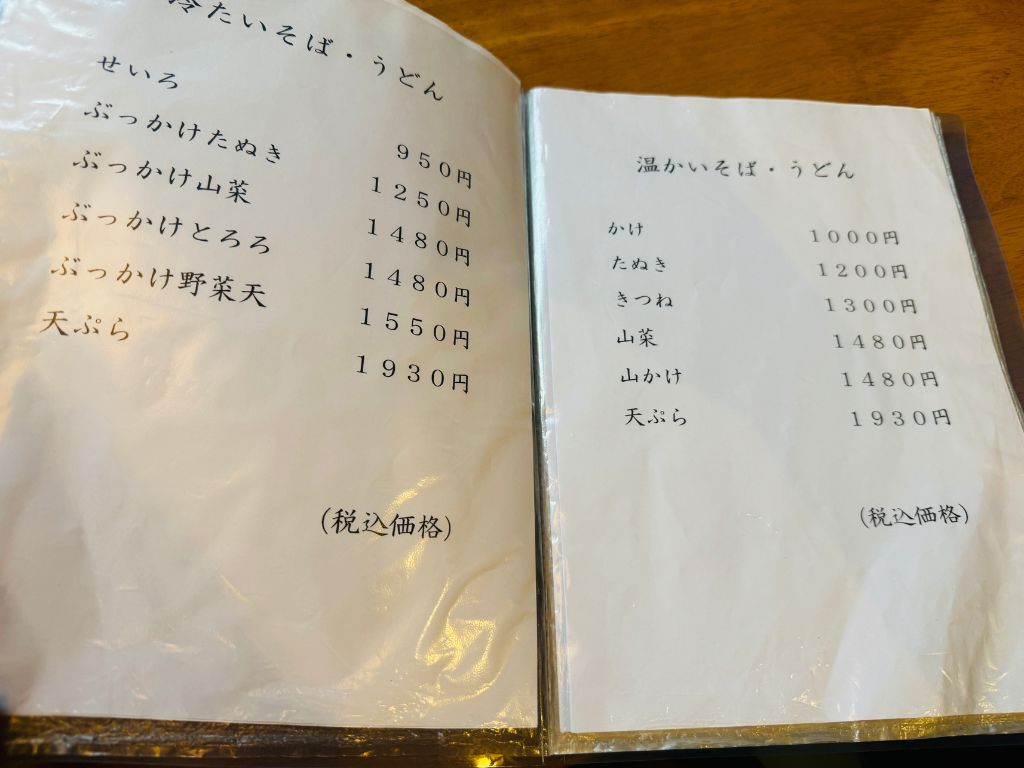 冷たいそば・うどん
せいろ 950円
ぶっかけたぬき 1250円
ぶっかけ山菜 1480円
ぶっかけとろろ 1480円
ぶっかけ野菜天 1550円
天ぷら 1930円
(税込価格)
温かいそば・うどん
かけ 1000円
たぬき 1200円
きつね 1300円
山菜 1480円
山かけ 1480円
天ぷら 1930円
(税込価格)